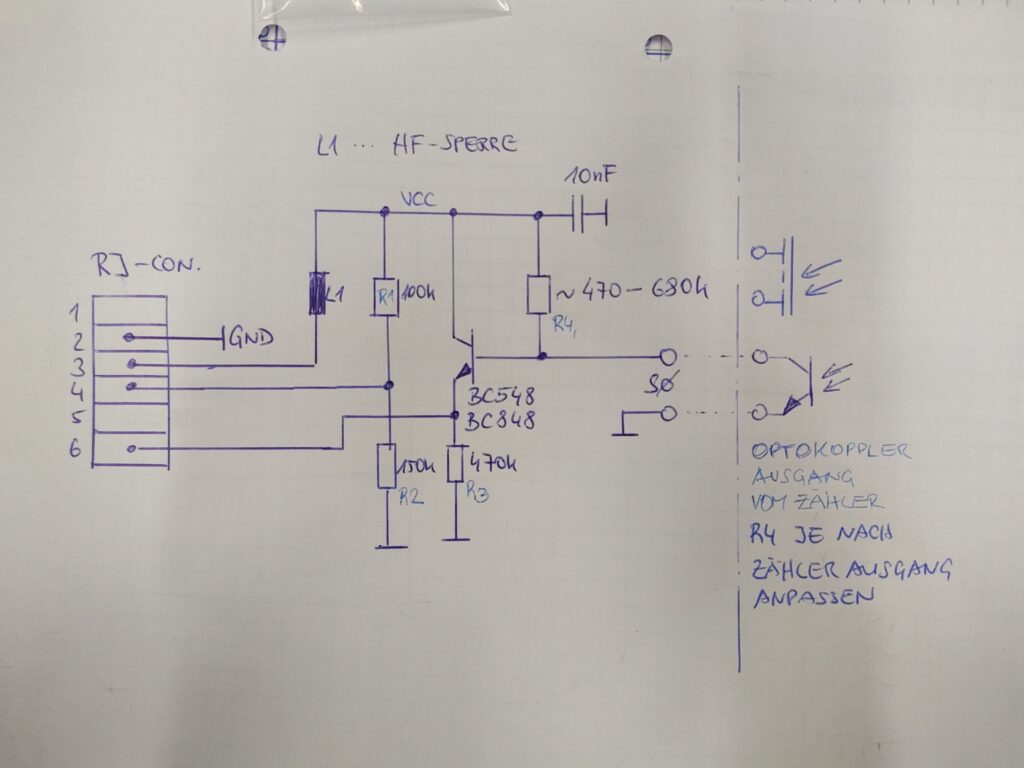 L1 ... HF-SPERRE
10nF
VCC
RJ-CON.
L1
R1
100k
~ 470 - 680k
R4,
1
2
GND
3
4
5
6
BC548
BC848
SØ
150k
R2
470k
R3
OPTOKOPPLER
AUSGANG
VOM ZÄHLER
R4 JE NACH
ZÄHLER AUSGANG
ANPASSEN